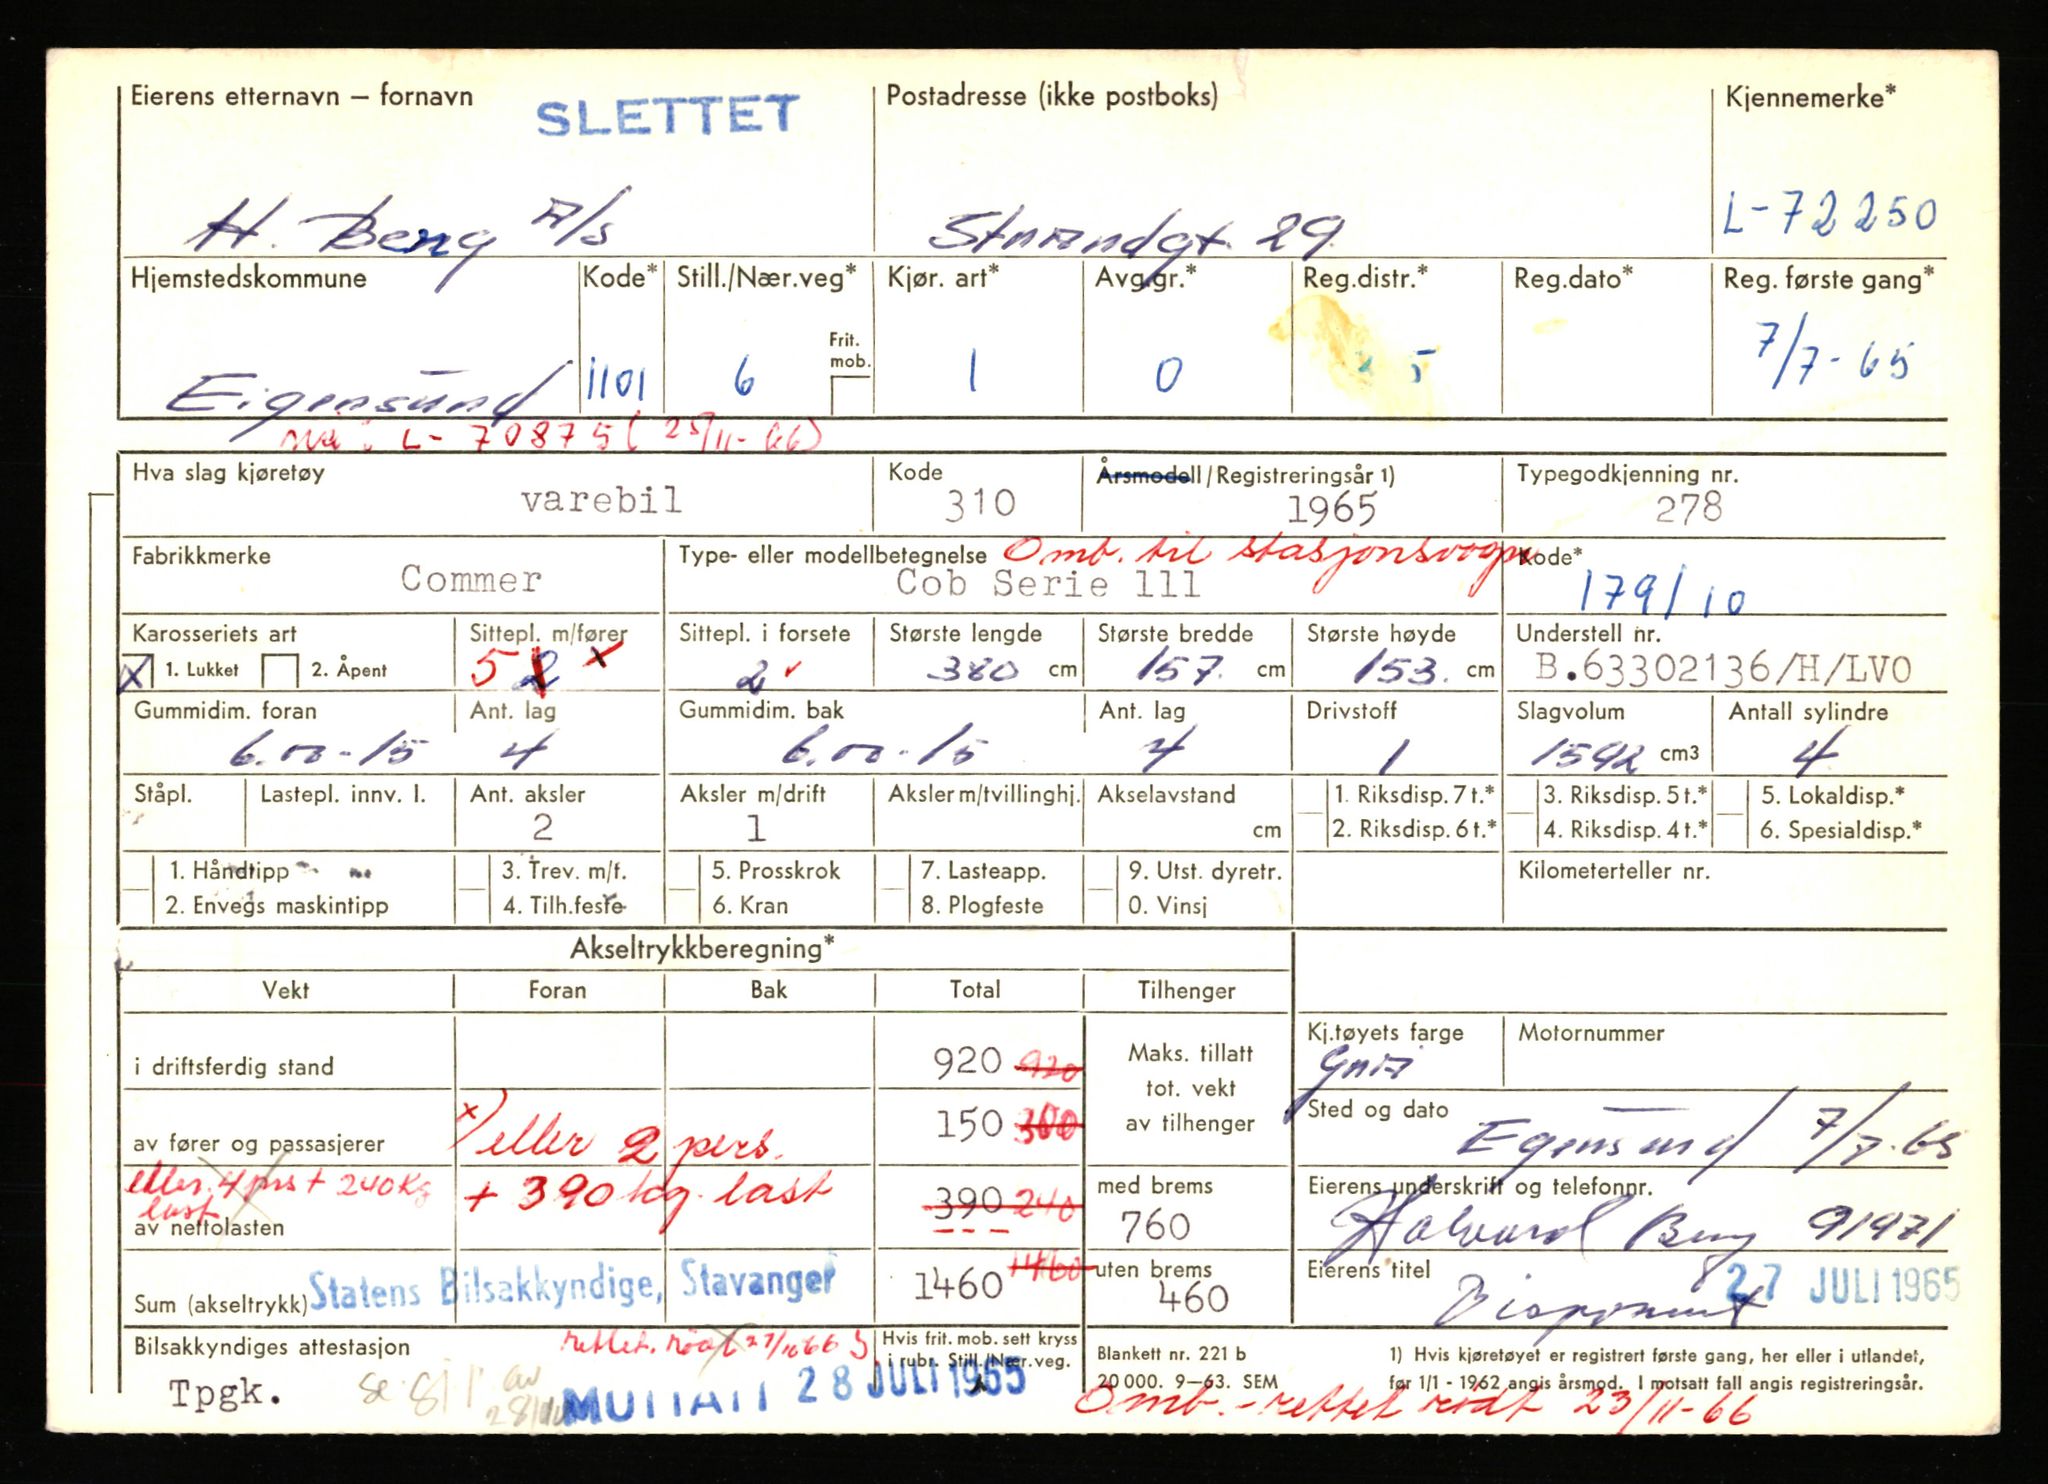 Eierens etternavn – fornavn SLETTET Postadresse (ikke postboks) Kjennemerke*
H. Berg A/S Strandgt. 29 L-72250
Hjemstedskommune Kode* Still./Nær.veg* Kjør. art* Avg.gr.* Reg.distr.* Reg.dato* Reg. første gang*
Frit. mob.
Eigersund 1101 6 1 0 5 7/7-65
nå: L-70875 (25/11-66)
Hva slag kjøretøy Kode Årsmodell/Registreringsår 1) Typegodkjenning nr.
varebil 310 1965 278
Fabrikkmerke Type- eller modellbetegnelse Omb. til stasjonsvogn Kode*
Commer Cob Serie 111 179/10
Karosseriets art Sittepl. m/fører Sittepl. i forsete Største lengde Største bredde Største høyde Understell nr.
X 1. Lukket 2. Åpent 5 2 x 2 380 cm 157 cm 153 cm B.63302136/H/LVO
Gummidim. foran Ant. lag Gummidim. bak Ant. lag Drivstoff Slagvolum Antall sylindre
6.00-15 4 6.00-15 4 1 1592 cm3 4
Ståpl. Lastepl. innv. l. Ant. aksler Aksler m/drift Aksler m/tvillinghj. Akselavstand 1. Riksdisp. 7 t.* 3. Riksdisp. 5 t.* 5. Lokaldisp.*
2 1 cm 2. Riksdisp. 6 t.* 4. Riksdisp. 4 t.* 6. Spesialdisp.*
1. Håndtipp 3. Trev. m/f. 5. Prosskrok 7. Lasteapp. 9. Utst. dyretr. Kilometerteller nr.
2. Envegs maskintipp 4. Tilh.feste 6. Kran 8. Plogfeste 0. Vinsj
Akseltrykkberegning*
Vekt Foran Bak Total Tilhenger
Kj.tøyets farge Motornummer
i driftsferdig stand 920 920 Maks. tillatt tot. vekt av tilhenger Grå
Sted og dato
av fører og passasjerer x) eller 2 pers. 150 300 Egersund 7/7-65
eller 4 prs + 240 kg last + 390 kg. last 390 240 med brems Eierens underskrift og telefonnr.
av nettolasten 760 Halvard Berg 91971
1460 uten brems Eierens titel 27 JULI 1965
Sum (akseltrykk) Statens Bilsakkyndige, Stavanger 1460 460 Disponent
Bilsakkyndiges attestasjon rettet rødt Hvis frit. mob. sett kryss i rubr. Still./Nær.veg. Blankett nr. 221 b 1) Hvis kjøretøyet er registrert første gang, her eller i utlandet,
20 000. 9–63. SEM før 1/1 - 1962 angis årsmod. I motsatt fall angis registreringsår.
Tpgk. MOTTATT 28 JULI 1965
Omb. - rettet rødt 23/11-66